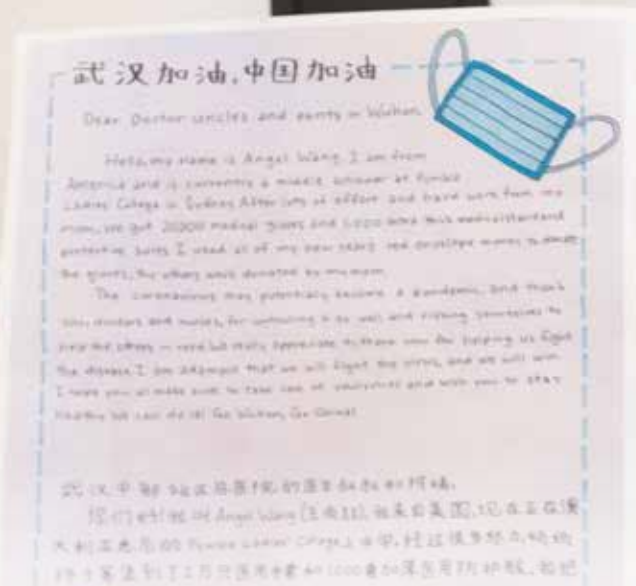 武汉加油,中国加油
Dear Doctor uncles and aunts in Wuhan,
Hello, my name is Angel Wang. I am from
America and is currently a middle schooler at Pymble
Ladies College in Sydney. After lots of effort and hard work from my
mom, we got 20000 medical gloves and 1,000
protective suits. I used all of my new years red envelope money to
the gloves, the others were donated by my mom.
The coronavirus may potentially become a pandemic, and thank
you, doctors and nurses, for controlling it so well and risking yourselves to
help the others in need. We really appreciate you for helping us fight
the disease. I am that we will fight the virus, and we will win.
I hope you all make sure to take care of yourselves and wish you to stay
healthy. We can do it! Go Wuhan, Go China!
武汉中部战区总医院的医生叔叔和阿姨,
你们好!我叫 Angel Wang 我来自美国,现在正在澳
大利亚悉尼的 Pymble Ladies' College上中学,经过很多努力,妈妈
2万只医用手套和1000套加厚医用防护服,我把